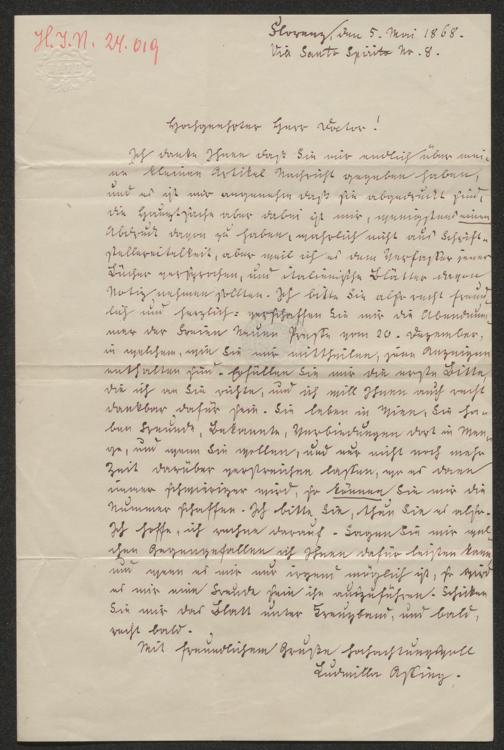 H.I.N. 24.019
Florenz, den 5. Mai 1868.
Via Santo Spirito Nr. 8.
Hochgeehrter Herr Doctor!
Ich danke Ihnen daß Sie mir endlich über mei-
ne kleinen Artikel Nachricht gegeben haben,
und es ist mir angenehm daß sie abgedruckt sind,
die Hauptsache aber dabei ist mir, wenigstens einen
Abdruck davon zu haben, wahrlich nicht aus Schrift-
stellereitelkeit, aber weil ich es dem Verfasser jener
Bücher versprochen, und italiänische Blätter davon
Notiz nehmen sollten. Ich bitte Sie also recht freund-
lich und herzlich: verschaffen Sie mir die Abendnum-
mer der Freien Neuen Presse vom 20. Dezember,
in welchem, wie Sie mir mittheilen, jene Anzeigen
enthalten sind. Erfüllen Sie mir die erste Bitte
die ich an Sie richte, und ich will Ihnen auch recht
dankbar dafür sein. Sie leben in Wien, Sie ha-
ben Freunde, Bekannte, Verbindungen dort in Men-
ge, und wenn Sie wollen, und nur nicht noch mehr
Zeit darüber verstreichen lassen, wo es dann
immer schwieriger wird, so können Sie mir die
Nummer schaffen. Ich bitte Sie, thun Sie es also.
Ich hoffe, ich rechne darauf. Sagen Sie mir wel-
chen Gegengefallen ich Ihnen dafür leisten kann
und wenn es mir nur irgend möglich ist, so wird
es mir eine Freude sein ihn auszuführen. Schicken
Sie mir das Blatt unter Kreuzband, und bald,
recht bald.
Mit freundlichem Gruße hochachtungsvoll
Ludmilla Assing.